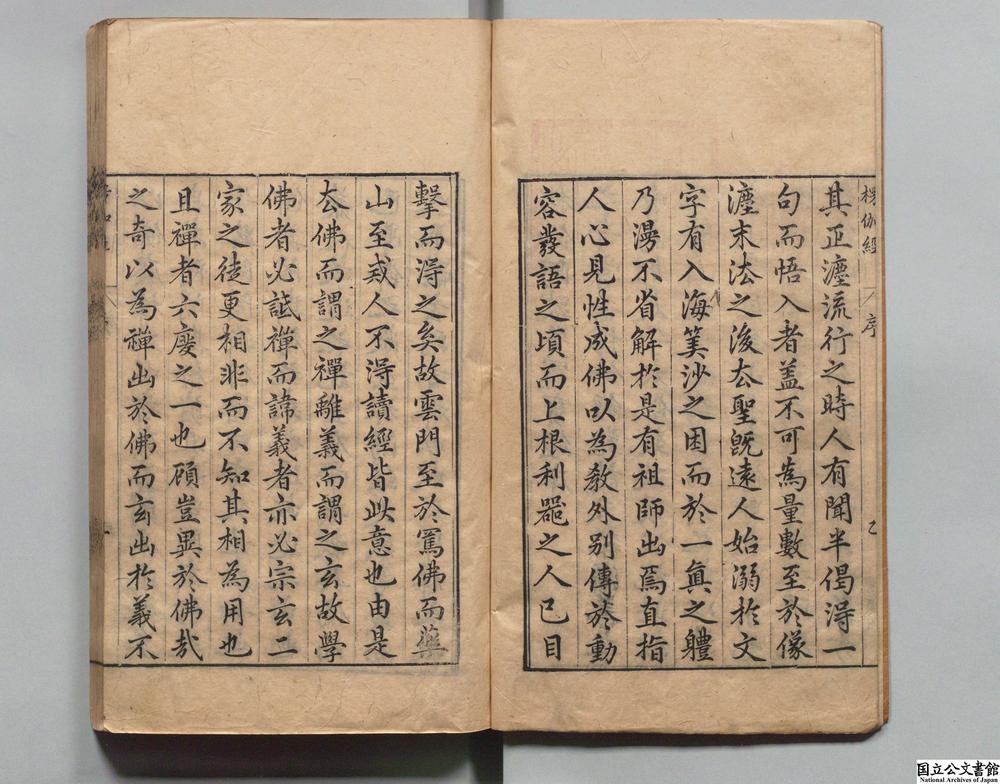 楞伽經 序
其正灋流行之時人有聞半偈淂一
句而悟入者盖不可為量數至於像
灋末法之後去聖旣遠人始溺於文
字有入海筭沙之困而於一眞之體
乃漫不省解於是有祖師出焉直指
人心見性成佛以為敎外别傳於動
容發語之頃而上根利噐之人已目
擊而淂之矣故雲門至於罵佛而藥
山至戒人不淂讀經皆此意也由是
去佛而謂之禪離義而謂之玄故學
佛者必詆禪而諱義者亦必宗玄二
家之徒更相非而不知其相為用也
且禪者六度之一也顧豈異於佛哉
之奇以為禪出於佛而玄出於義不
国立公文書館
National Archives of Japan